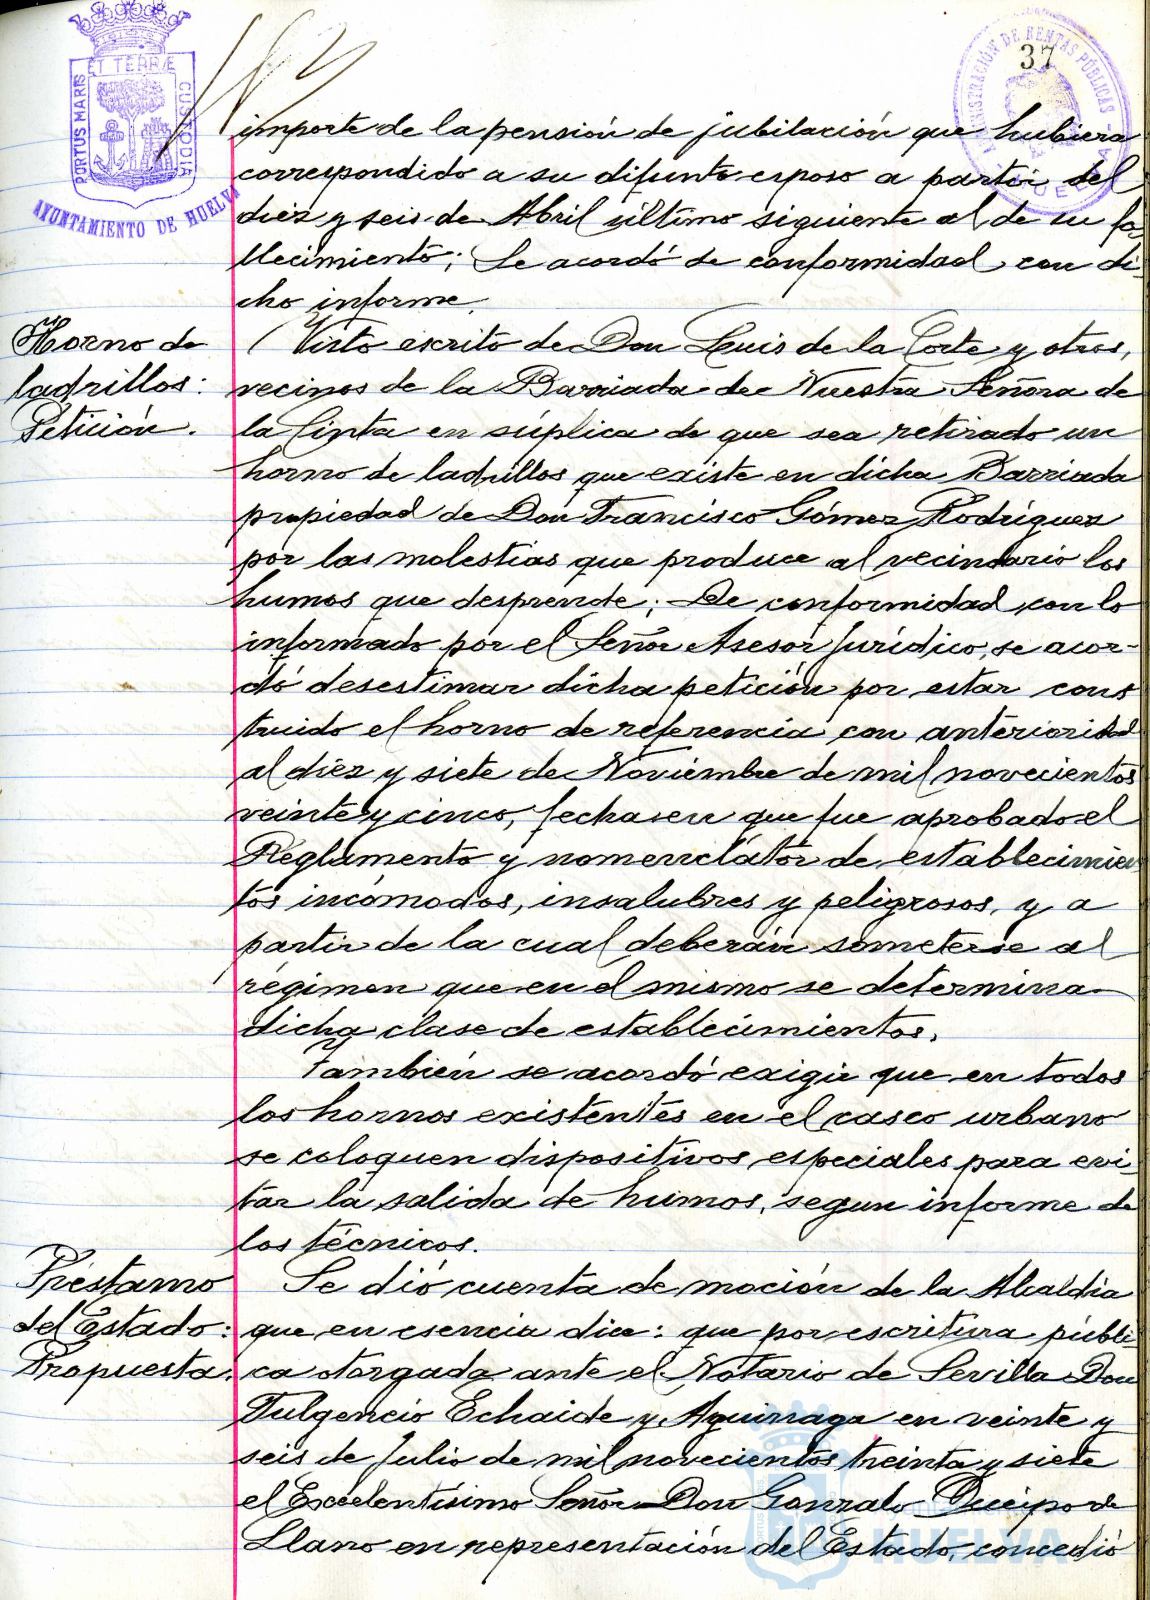 PORTUS MARIS ET TERRÆ CUSTODIA
AYUNTAMIENTO DE HUELVA
ADMINISTRACIÓN DE RENTAS PÚBLICAS
HUELVA
37
importe de la pensión de jubilación que hubiera
correspondido a su difunto esposo a partir del
diez y seis de Abril último siguiente al de su fa-
llecimiento; Se acordó de conformidad con di-
cho informe.
Horno de
ladrillos:
Petición.
Visto escrito de Don Luis de la Corte y otros,
vecinos de la Barriada de Nuestra Señora de
la Cinta en súplica de que sea retirado un
horno de ladrillos que existe en dicha Barriada
propiedad de Don Francisco Gómez Rodríguez
por las molestias que produce al vecindario los
humos que desprende; De conformidad con lo
informado por el Señor Asesor Jurídico, se acor-
dó desestimar dicha petición por estar cons
truido el horno de referencia con anterioridad
al diez y siete de Noviembre de mil novecientos
veinte y cinco, fecha en que fue aprobado el
Reglamento y nomenclátor de establecimien
tos incómodos, insalubres y peligrosos, y a
partir de la cual deberán someterse al
régimen que en el mismo se determina
dicha clase de establecimientos.
También se acordó exigir que en todos
los hornos existentes en el casco urbano
se coloquen dispositivos especiales para evi-
tar la salida de humos, segun informe de
los técnicos.
Préstamo
del Estado:
Propuesta.
Se dió cuenta de moción de la Alcaldía
que en esencia dice: que por escritura públi-
ca otorgada ante el Notario de Sevilla Don
Fulgencio Echaide y Aguinaga en veinte y
seis de Julio de mil novecientos treinta y siete
el Excelentísimo Señor Don Gonzalo Queipo de
Llano en representación del Estado, concedió
Ayuntamiento de
HUELVA